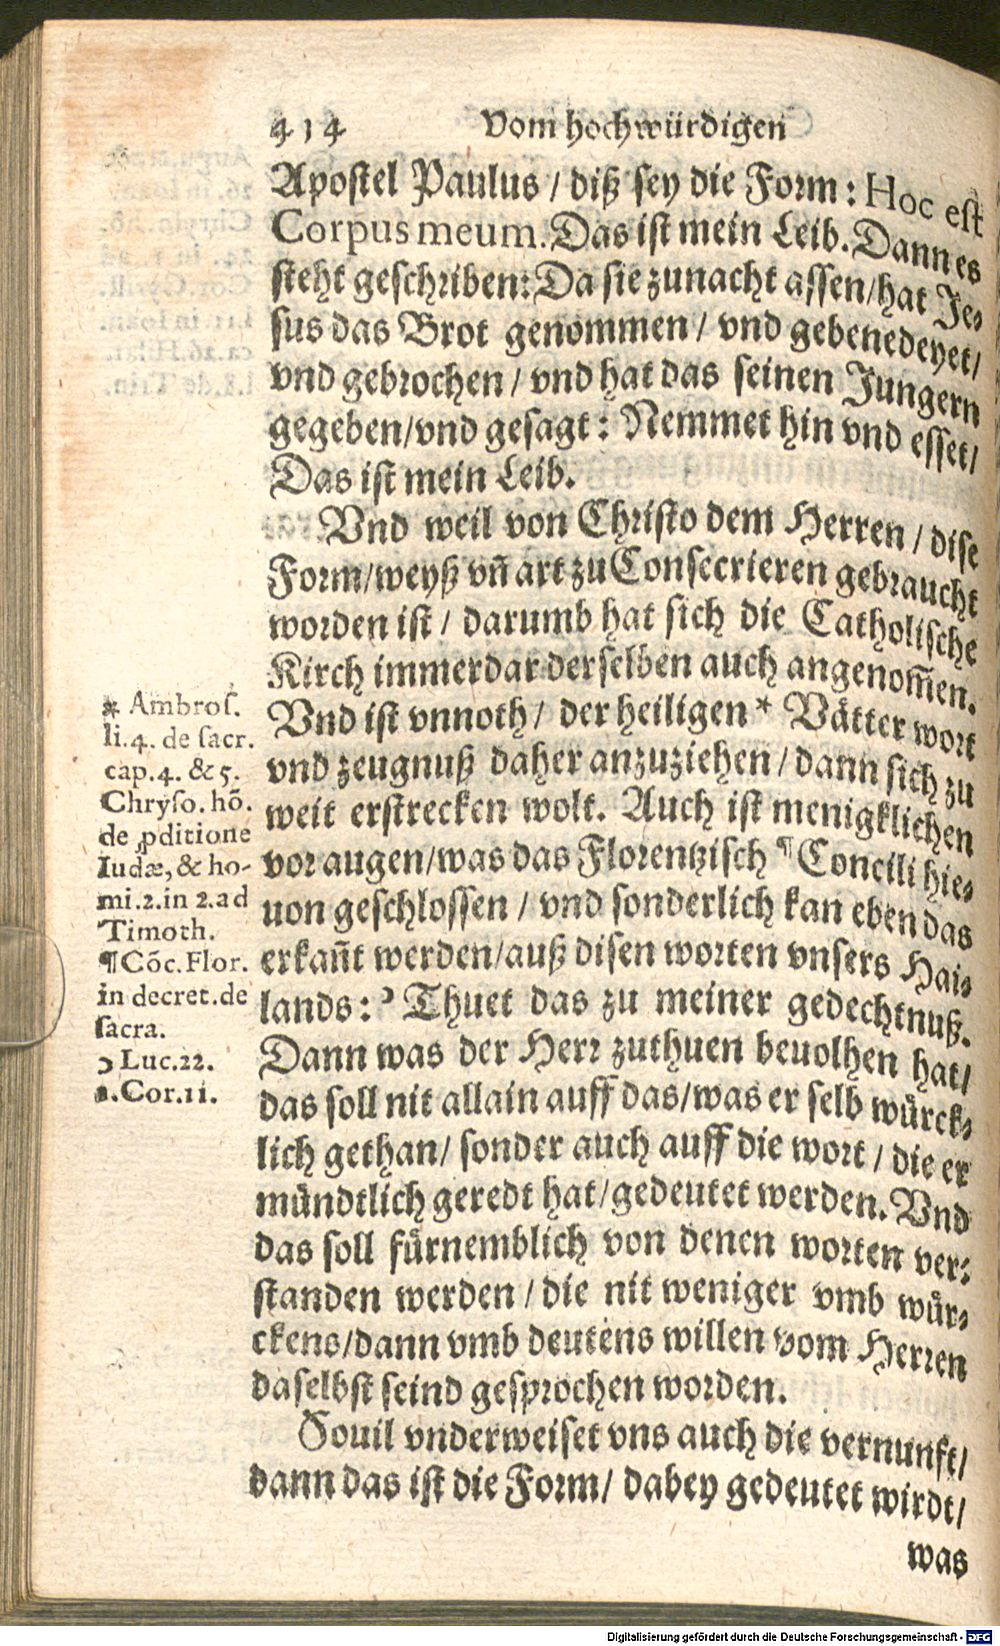 414 Vom hochwürdigen
Apostel Paulus / diß sey die Form : Hoc est
Corpus meum. Das ist mein Leib. Dann es
steht geschriben: Da sie zunacht assen/hat Je-
sus das Brot genommen / vnd gebenedeyet/
vnd gebrochen / vnd hat das seinen Jungern
gegeben/vnd gesagt : Nemmet hin vnd esset/
Das ist mein Leib.
Vnd weil von Christo dem Herren / dise
Form/weyß vñ art zu Consecrieren gebraucht
worden ist / darumb hat sich die Catholische
Kirch immerdar derselben auch angenom̃en.
Vnd ist vnnoth / der heiligen * Vätter wort
vnd zeugnuß daher anzuziehen / dann sich zu
weit erstrecken wolt. Auch ist menigklichen
vor augen/was das Florentzisch ¶ Concili hie-
uon geschlossen / vnd sonderlich kan eben das
erkañt werden/auß disen worten vnsers Hai-
lands : ɔ Thuet das zu meiner gedechtnuß.
Dann was der Herr zuthuen beuolhen hat/
das soll nit allain auff das/was er selb würck-
lich gethan/ sonder auch auff die wort / die er
mündtlich geredt hat/gedeutet werden. Vnd
das soll fürnemblich von denen worten ver-
standen werden / die nit weniger vmb wür-
ckens/dann vmb deutens willen vom Herren
daselbst seind gesprochen worden.
Souil vnderweiset vns auch die vernunft/
dann das ist die Form/ dabey gedeutet wirdt/
was
* Ambros.
li.4. de sacr.
cap.4. & 5.
Chryso. hō.
de ꝓditione
Iudæ, & ho-
mi.2.in 2.ad
Timoth.
¶ Cōc. Flor.
in decret.de
sacra.
ɔ Luc.22.
1.Cor.11.
Digitalisierung gefördert durch die Deutsche Forschungsgemeinschaft - DFG